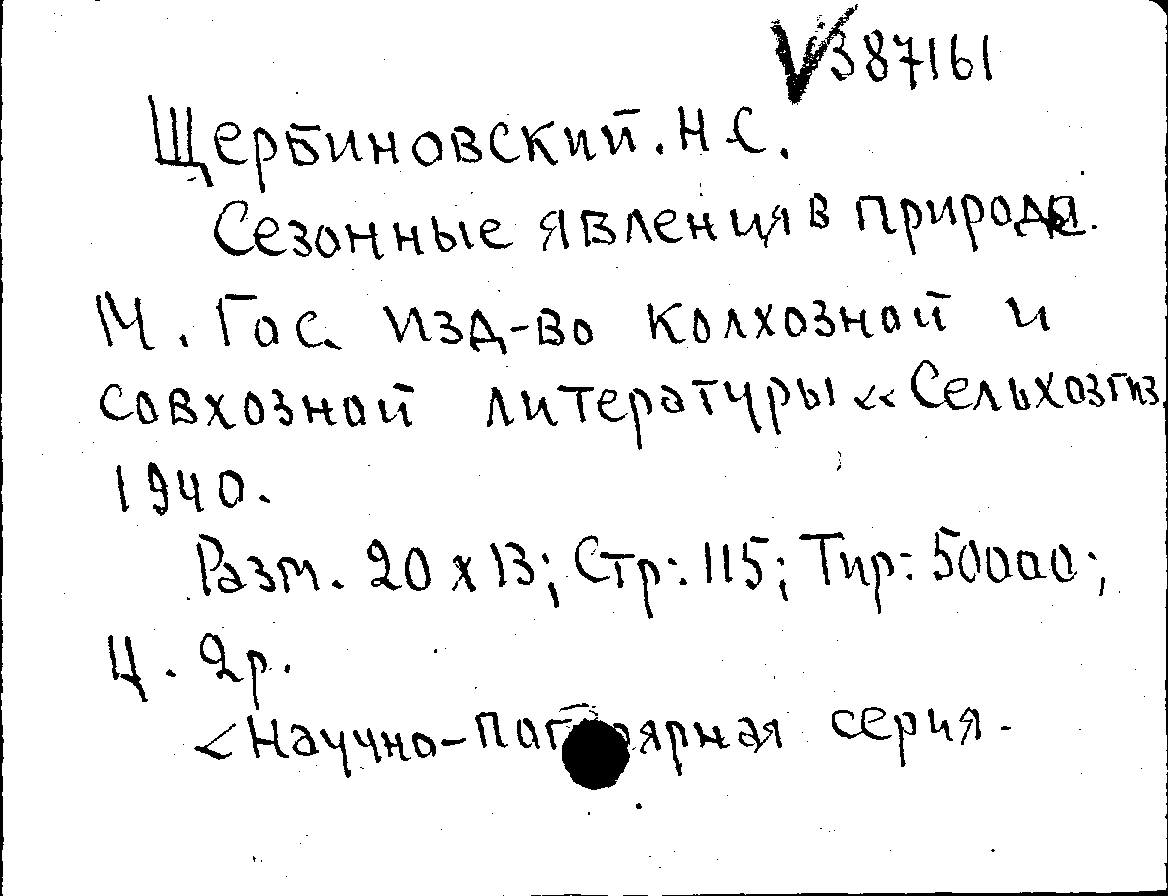 V387161
Щербиновский. Н С.
Сезонные явления в природе.
М. Гос. изд-во колхозной и
совхозной литературы «Сельхозгиз,
1940.
Разм. 20 x 13; Стр: 115; Тир: 50000;
Ц. 2р.
<Научно- серия.